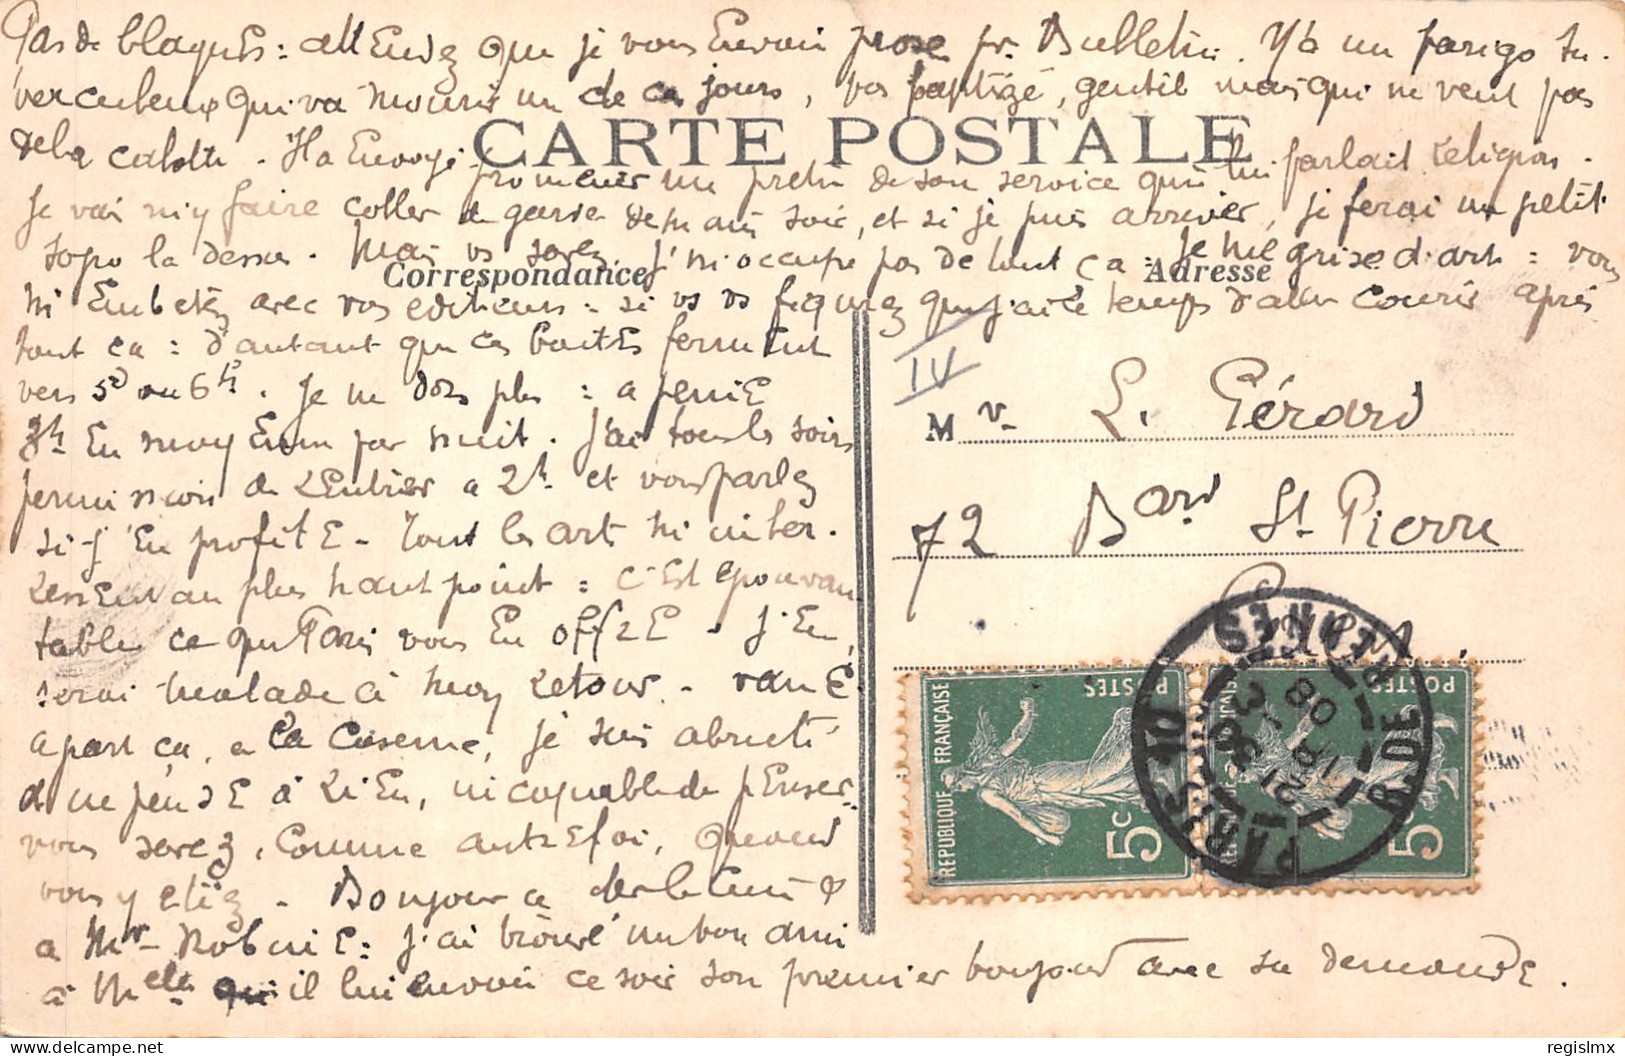 Pas de blagues : attendez que je vous envoie prose pr. Bulletin. Y a un parigo tu-
berculeux qui va mourir un de ces jours, pas baptizé, gentil mais qui ne veut pas
de la calotte. Il a Envoyé
CARTE POSTALE
promener un prêtre de son service qui lui parlait religion.
Je vais m'y faire coller de garde demain soir, et si je puis arriver, je ferai un petit
topo la dessus. Mais vs savez, j' m'occupe pas de tout ça : Je me grise d'art : vous
Correspondance
Adresse
m'Enbetez avec vos editions : si vs vs figurez que j'ai le temps d'aller courir après
tout ça : d'autant que ces boites ferment
vers 5h ou 6h. Je ne dors plus : a peine
3h En moyenne par nuit. J'ai tous les soirs
permission de rentrer a 2h et vous parlez
si j'En profite - Tout les arts m'inter-
ressent au plus haut point : c'est epouvan
table ce que Paris vous En offre. J'En
serai malade à mon retour.
a part ça, a la Caserne, je suis abruti
et ne pense à rien, incapable de penser.
vous savez, comme autrefois, quand
vous y etiez. Bonjour a
a Mr : j'ai trouvé un bon ami
à Melle qui il lui envoie ce soir son premier bonjour avec sa demande.
IV
Mr L. Gérard
72 Bard St Pierre
RÉPUBLIQUE FRANÇAISE
POSTES
5c
RÉPUBLIQUE FRANÇAISE
POSTES
5c
PARIS 110
R. DE RENNES
08
regislmx